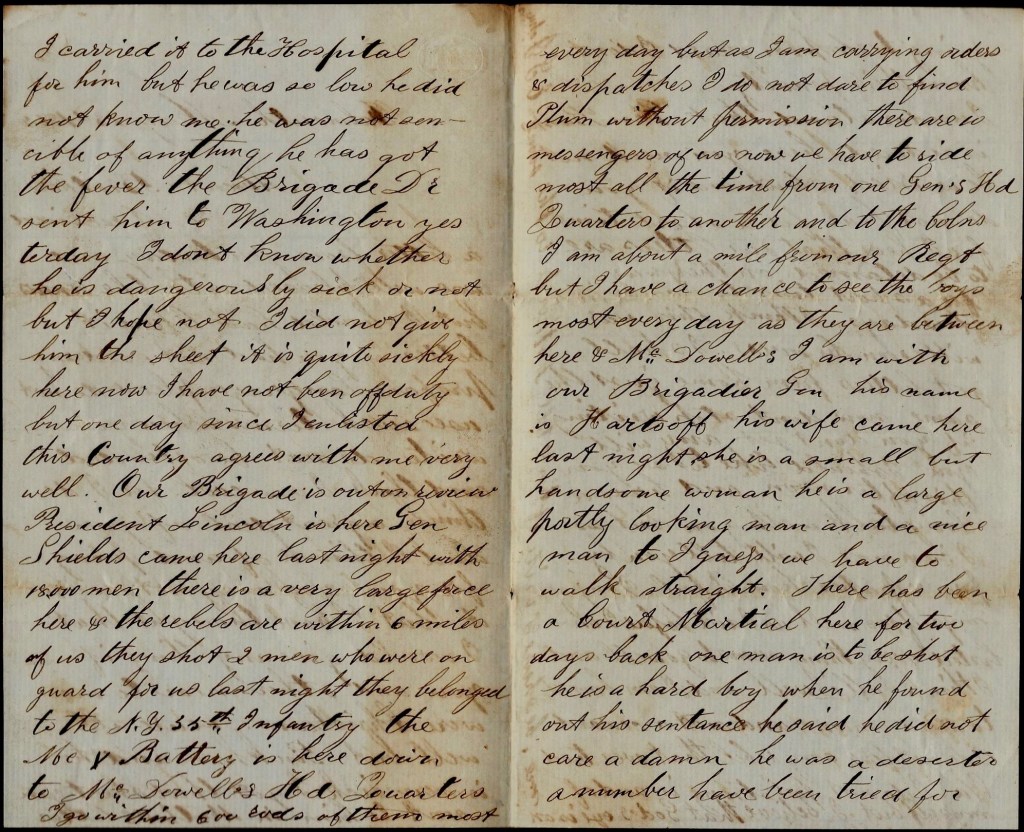 I carried it to the Hospital
for him but he was so low he did
not know me. he was not sen-
cible of anything he has got
the fever the Brigade Dr
sent him to Washington yes
terday I don't know whether
he is dangerously sick or not
but I hope not I did not give
him the sheet it is quite sickly
here now I have not been off duty
but one day since I enlisted
this Country agrees with me very
well. Our Brigade is out on review
President Lincoln is here Gen
Shields came here last night with
18000 men there is a very large force
here & the rebels are within 6 miles
of us they shot 2 men who were on
guard for us last night they belonged
to the N.Y. 35th Infantry the
Me V Battery is here down
to Mc Dowell's Hd. Quarters
I go within 600 rods of them most
every day but as I am carrying orders
& dispatches I do not dare to find
Plum without permission there are
messengers of us now we have to ride
most all the time from one Gen's Hd
Quarters to another and to the Colns
I am about a mile from our Regt
but I have a chance to see the boys
most every day as they are between
here & Mc Dowell's I am with
our Brigadier Gen his name
is Hartsoff his wife came here
last night she is a small but
handsome woman he is a large
portly looking man and a nice
man to I guess we have to
walk straight. There has been
a Court Martial here for two
days back one man is to be shot
he is a hard boy when he found
out his sentance he said he did not
care a damn he was a deserter
a number have been tried for